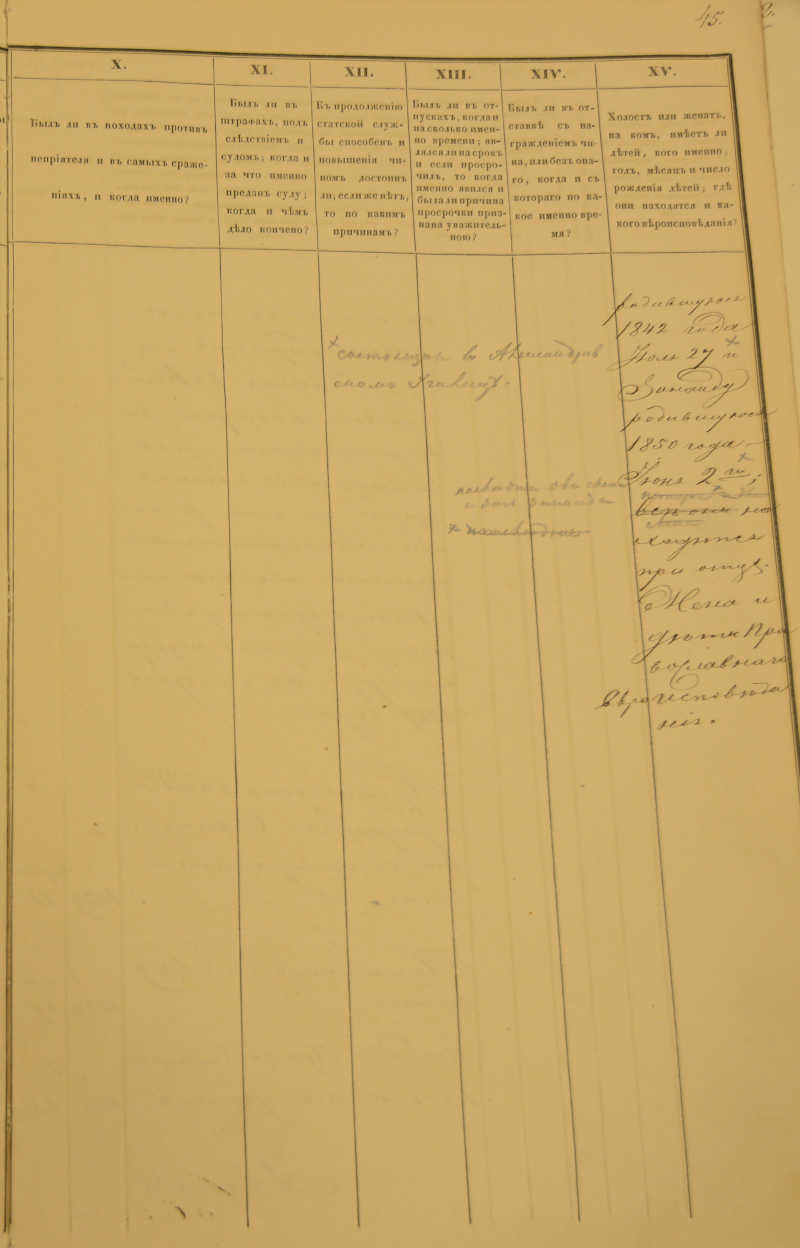 45.
X.
Былъ ли въ походахъ противъ
непріятеля и въ самыхъ сраже-
ніяхъ, и когда именно?
XI.
Былъ ли въ
штрафахъ, подъ
слѣдствіемъ и
судомъ; когда и
за что именно
преданъ суду;
когда и чѣмъ
дѣло кончено?
XII.
Къ продолженію
статской служ-
бы способенъ и
повышенія чи-
номъ достоинъ
ли; если же нѣтъ,
то по какимъ
причинамъ?
XIII.
Былъ ли въ от-
пускахъ, когда и
на сколько имен-
но времени; яв-
лялся ли на срокъ
и если просро-
чилъ, то когда
именно явился и
была ли причина
просрочки приз-
нана уважитель-
ною?
XIV.
Былъ ли въ от-
ставкѣ съ на-
гражденіемъ чи-
на, или безъ она-
го, когда и съ
котораго по ка-
кое именно вре-
мя?
XV.
Холостъ или женатъ,
на комъ, имѣетъ ли
дѣтей, кого именно;
годъ, мѣсяцъ и число
рожденія дѣтей; гдѣ
они находятся и ка-
кого вѣроисповѣданія?
родившуюся
1842 года
Іюля 27 и
Зинаиду
родившуюся
1850 года
Іюня 2
находятся
при отцѣ.
Жена и
дѣти Пра
вославнаго
Вѣроисповѣда
нія.